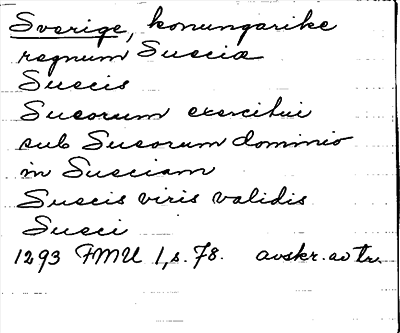 Sverige, konungarike
regnum Suecia
Suecis
Sueorum exercitui
sub Sueorum dominio
in Sueciam
Suecis viris validis
Sueci
1293 FMU 1, s. 78. avskr. av tr.